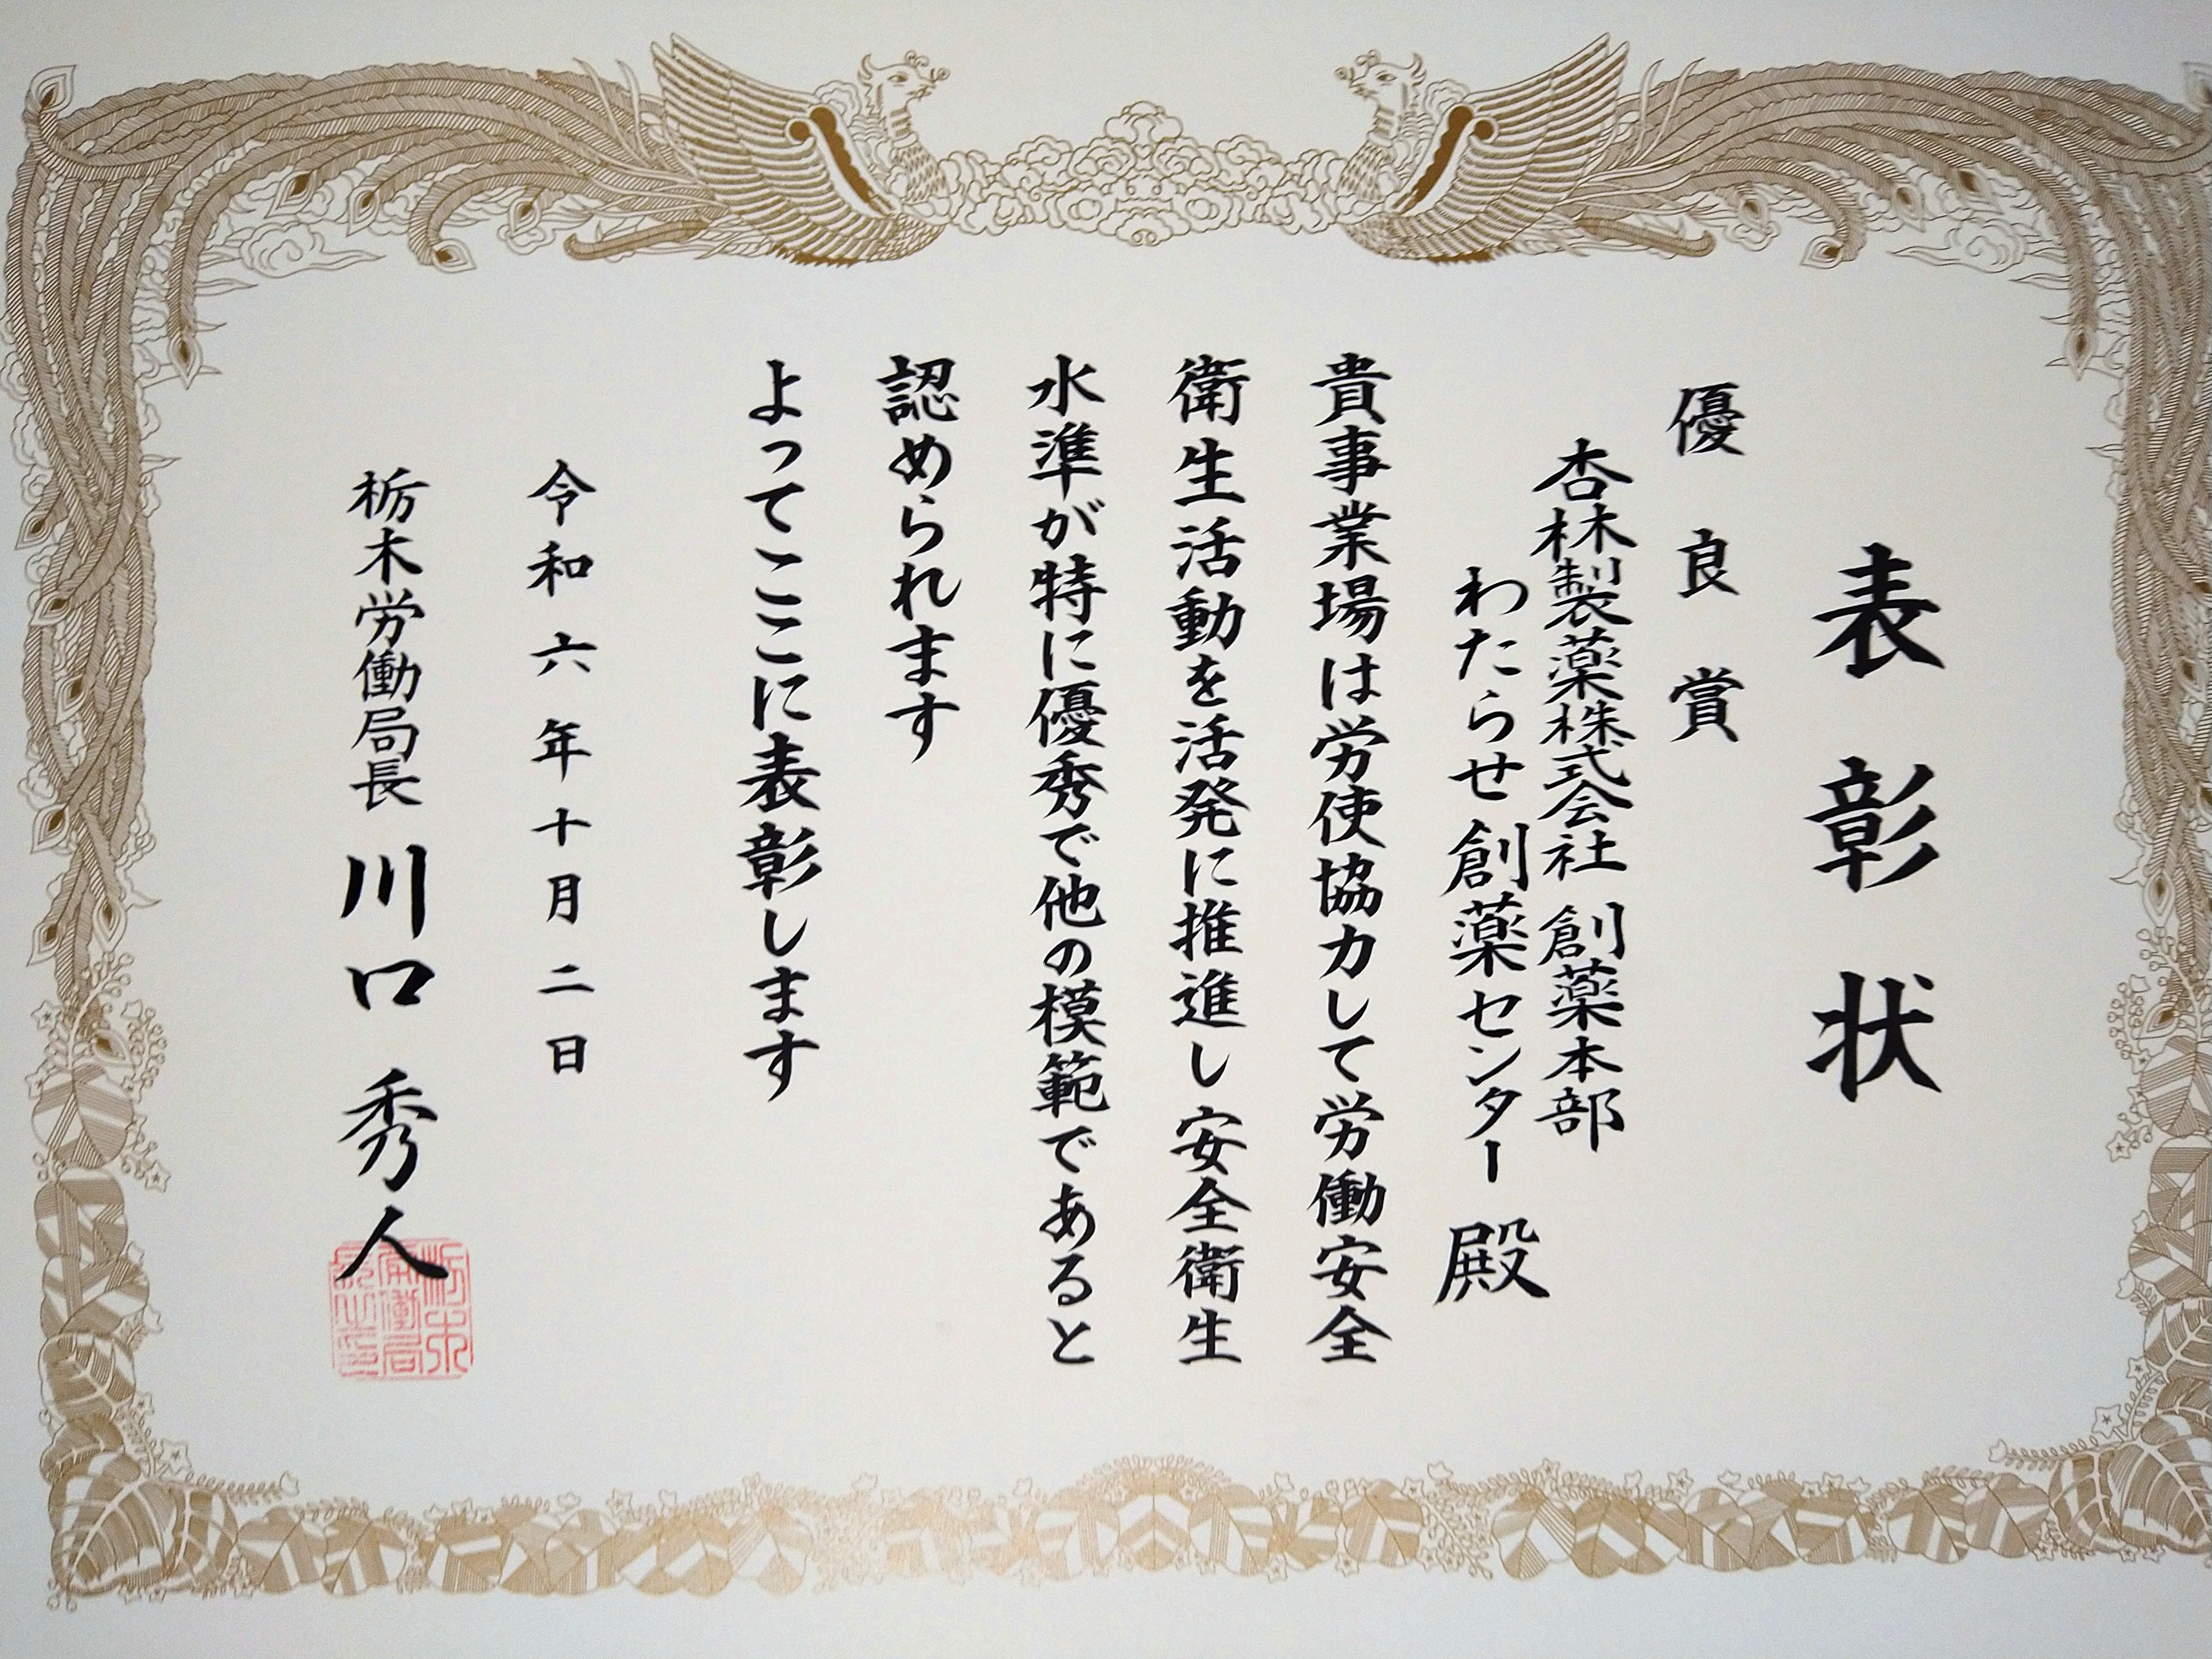 表彰状
優良賞
杏林製薬株式会社 創薬本部
わたらせ創薬センター 殿
貴事業場は労使協力して労働安全
衛生活動を活発に推進し安全衛生
水準が特に優秀で他の模範であると
認められます
よってここに表彰します
令和六年十月二日
栃木労働局長 川口秀人
栃木
労働局
長之印